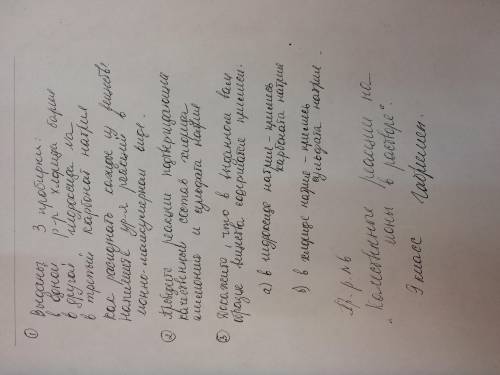 ① Выданы 3 пробирки:
в одной р-р хлорида бария
в другой гидроксида на
в третьей карбонат натрия
как распознать каждое из веществ?
напишите ур-я реакций в
ионно-молекулярном виде.
② Проведите реакции подтверждающие
качественный состав хлорида
аммония и сульфата натрия
③ Докажите, что в выданном вам
образце вещества содержатся примеси:
а) в гидроксиде натрия - примесь
карбоната натрия
б) в хлориде натрия - примесь
сульфата натрия.
Пр. р №6
"Качественные реакции на
ионы в растворе".
9 класс Габриелян.